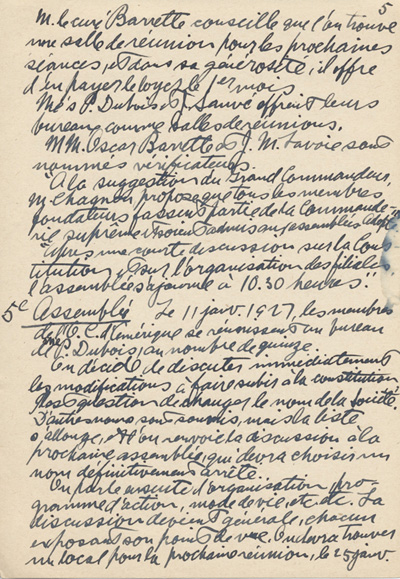 5
M. le curé Barrette conseille que l'on trouve
une salle de réunion pour les prochaines
séances, et dans sa générosité, il offre
d'en payer le loyer le 1er mois
Me's P. Dubois et J. Sauvé offrent leurs
bureaux comme salles de réunions.
MM. Oscar Barrette et J. M. Lavoie sont
nommés vérificateurs.
"A la suggestion du Grand Commandeur,
M. Chagnon propose que tous les membres
fondateurs fassent partie de la Commande-
rie suprême et soient admis aux assemblées. Adopté
"Après une courte discussion sur la Cons
titution, sur l'organisation des filiales
l'assemblée s'ajourne à 10.30 heures."
5e Assemblée Le 11 janv. 1927, les membres
de l'O. C. d'Amérique se réunissent au bureau
de Me P. Dubois, au nombre de quinze.
On décide de discuter immédiatement
les modifications à faire subir à la constitution
question de changer le nom de la société.
D'autres noms sont soumis, mais la liste
s'allonge, et l'on renvoie la discussion à la
prochaine assemblée, qui devra choisir un
nom définitivement arrêté.
On parle ensuite d'organisation, pro-
gramme d'action, mode de vie, etc. etc. La
discussion devient générale, chacun
exposant son point de vue. On devra trouver
un local pour la prochaine réunion, le 25 janv.